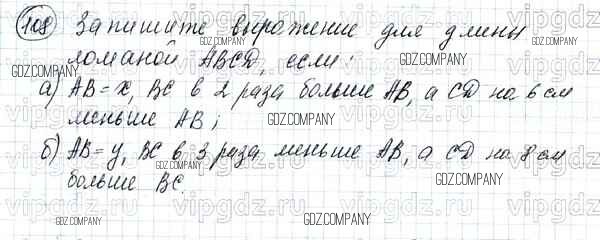 108 Запишите выражение для длины
ломаной ABCD, если:
а) AB=x, BC в 2 раза больше AB, а CD на 6 см
меньше AB;
б) AB=y, BC в 3 раза меньше AB, а CD на 8 см
больше BC.
GDZ.COMPANY
GDZ.COMPANY
GDZ.COMPANY
GDZ.COMPANY
GDZ.COMPANY
GDZ.COMPANY
GDZ.COMPANY
GDZ.COMPANY
vipgdz
vipgdz
vipgdz
vipgdz